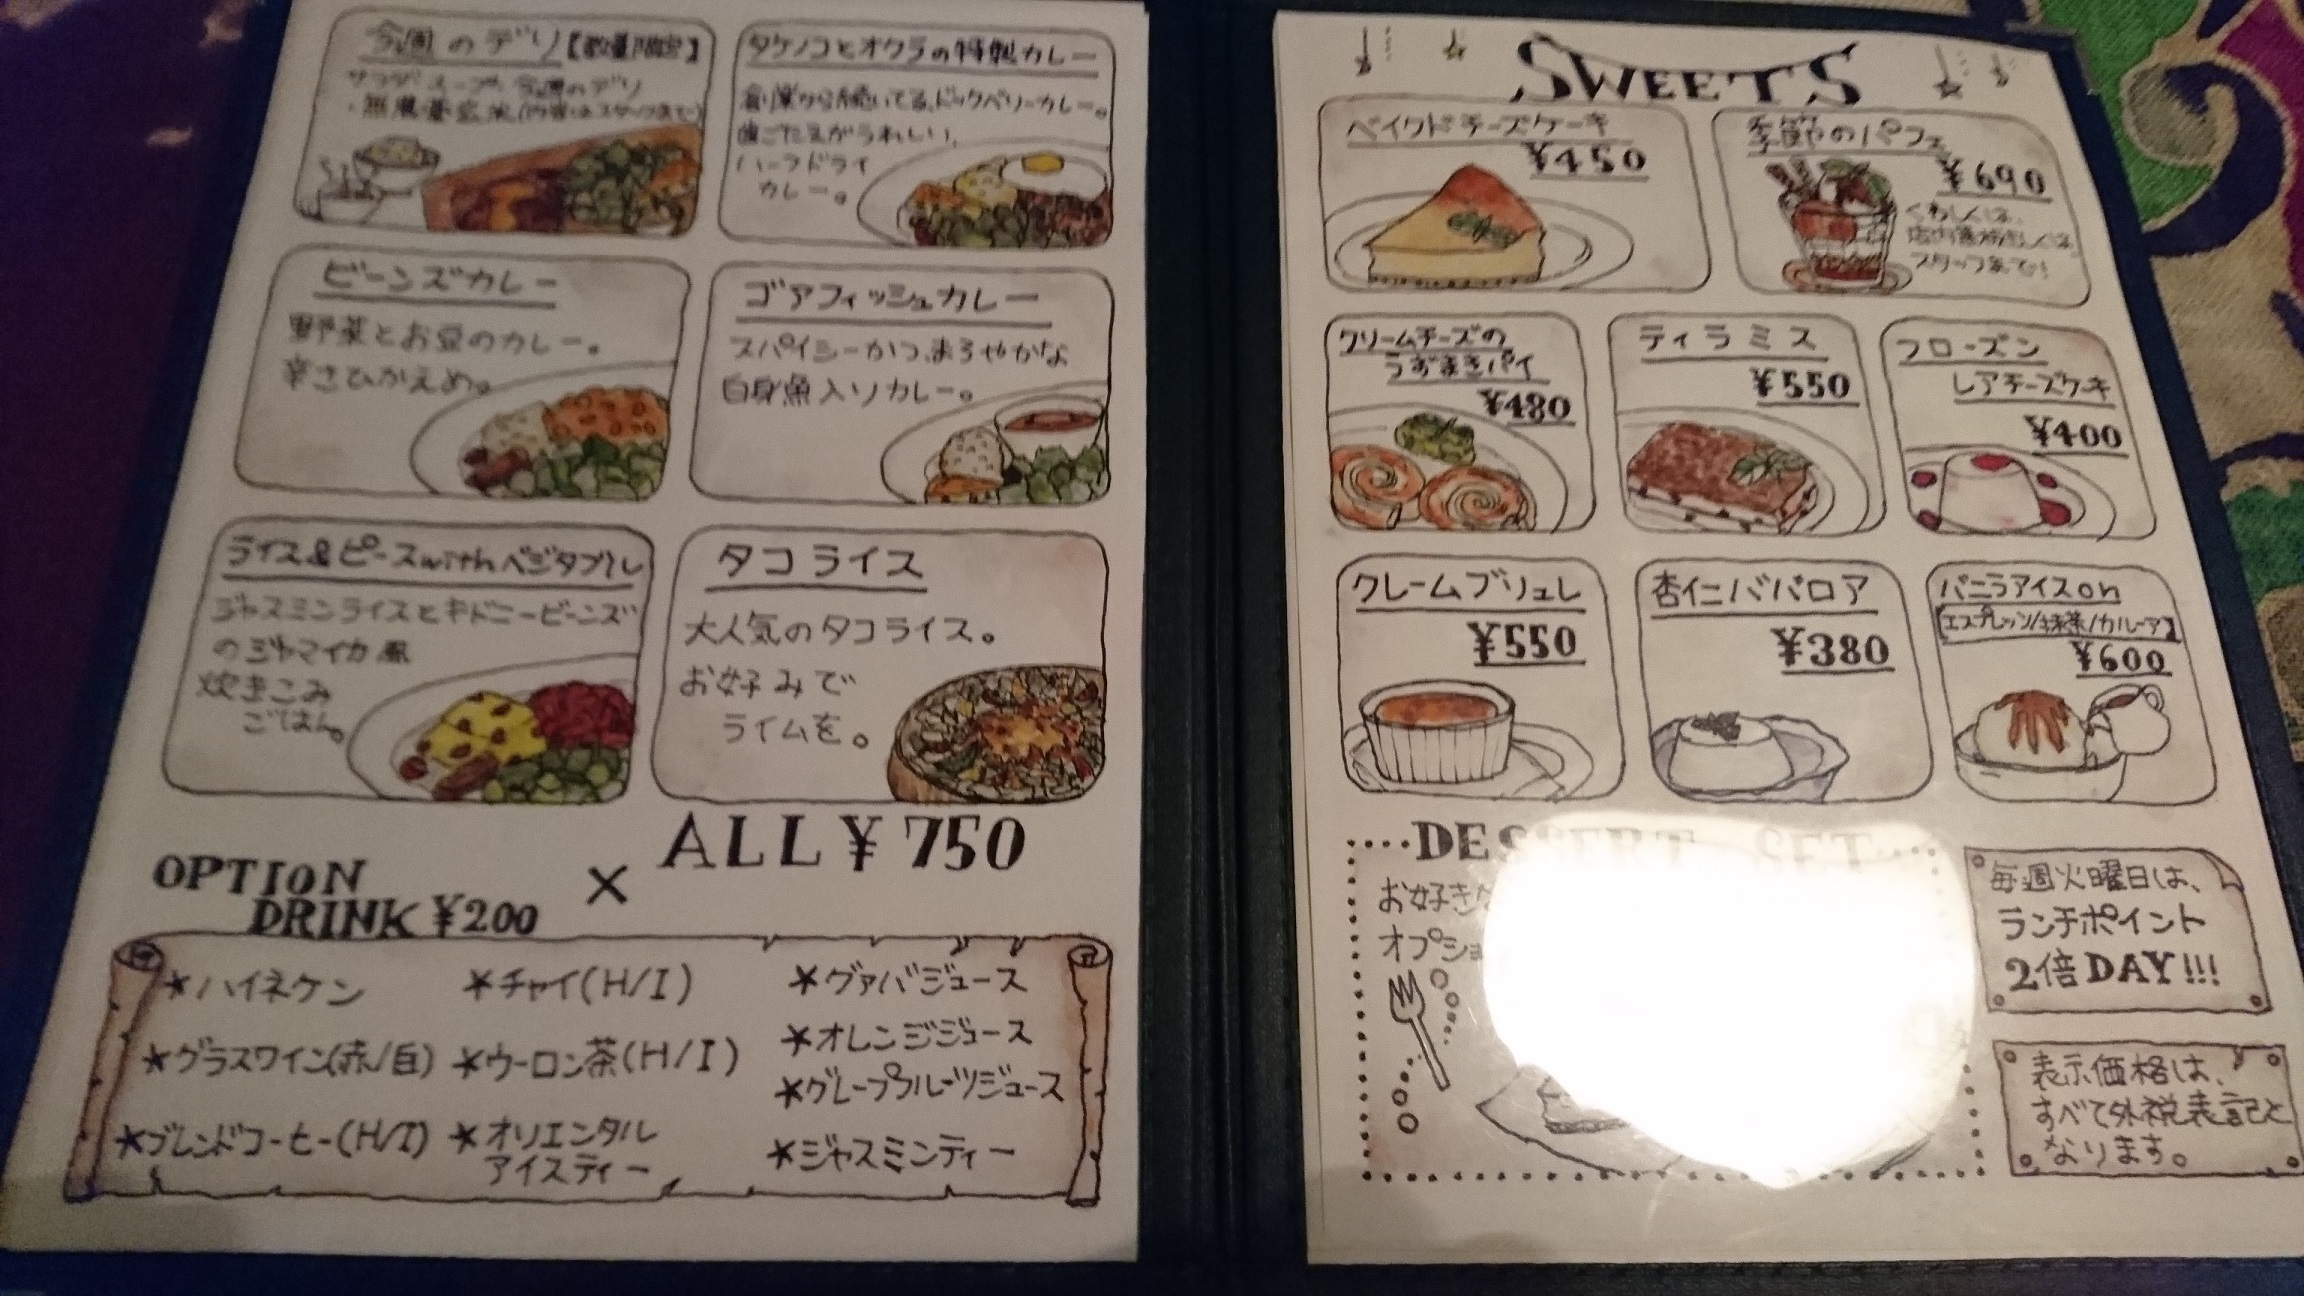 今週のデリ【数量限定】
サラダ スープ 今週のデリ
・無農薬玄米(内容はスタッフまで)
タケノコとオクラの特製カレー
創業から続いてる、ドックベリーカレー。
歯ごたえがうれしい、
ハーフドライ
カレー。
ビーンズカレー
野菜とお豆のカレー。
辛さひかえめ。
ゴアフィッシュカレー
スパイシーかつ、まろやかな
白身魚入りカレー。
ライス&ピースwithベジタブル
ジャスミンライスとキドニービーンズ
のジャマイカ風
炊きこみ
ごはん。
タコライス
大人気のタコライス。
お好みで
ライムを。
ALL ¥750
OPTION
DRINK ¥200
×
*ハイネケン
*チャイ(H/I)
*グァバジュース
*オレンジジュース
*グラスワイン(赤/白)
*ウーロン茶(H/I)
*グレープフルーツジュース
*ブレンドコーヒー(H/I)
*オリエンタル
アイスティー
*ジャスミンティー
SWEETS
ベイクドチーズケーキ
¥450
季節のパフェ
¥690
くわしくは、
店内黒板もしくは
スタッフまで!
クリームチーズの
うずまきパイ
¥480
ティラミス
¥550
フローズン
レアチーズケーキ
¥400
クレームブリュレ
¥550
杏仁ババロア
¥380
バニラアイスon
【エスプレッソ/抹茶/カルーア】
¥600
DESSERT SET
お好きな
オプショ
毎週火曜日は、
ランチポイント
2倍DAY!!!
表示価格は、
すべて外税表記と
なります。